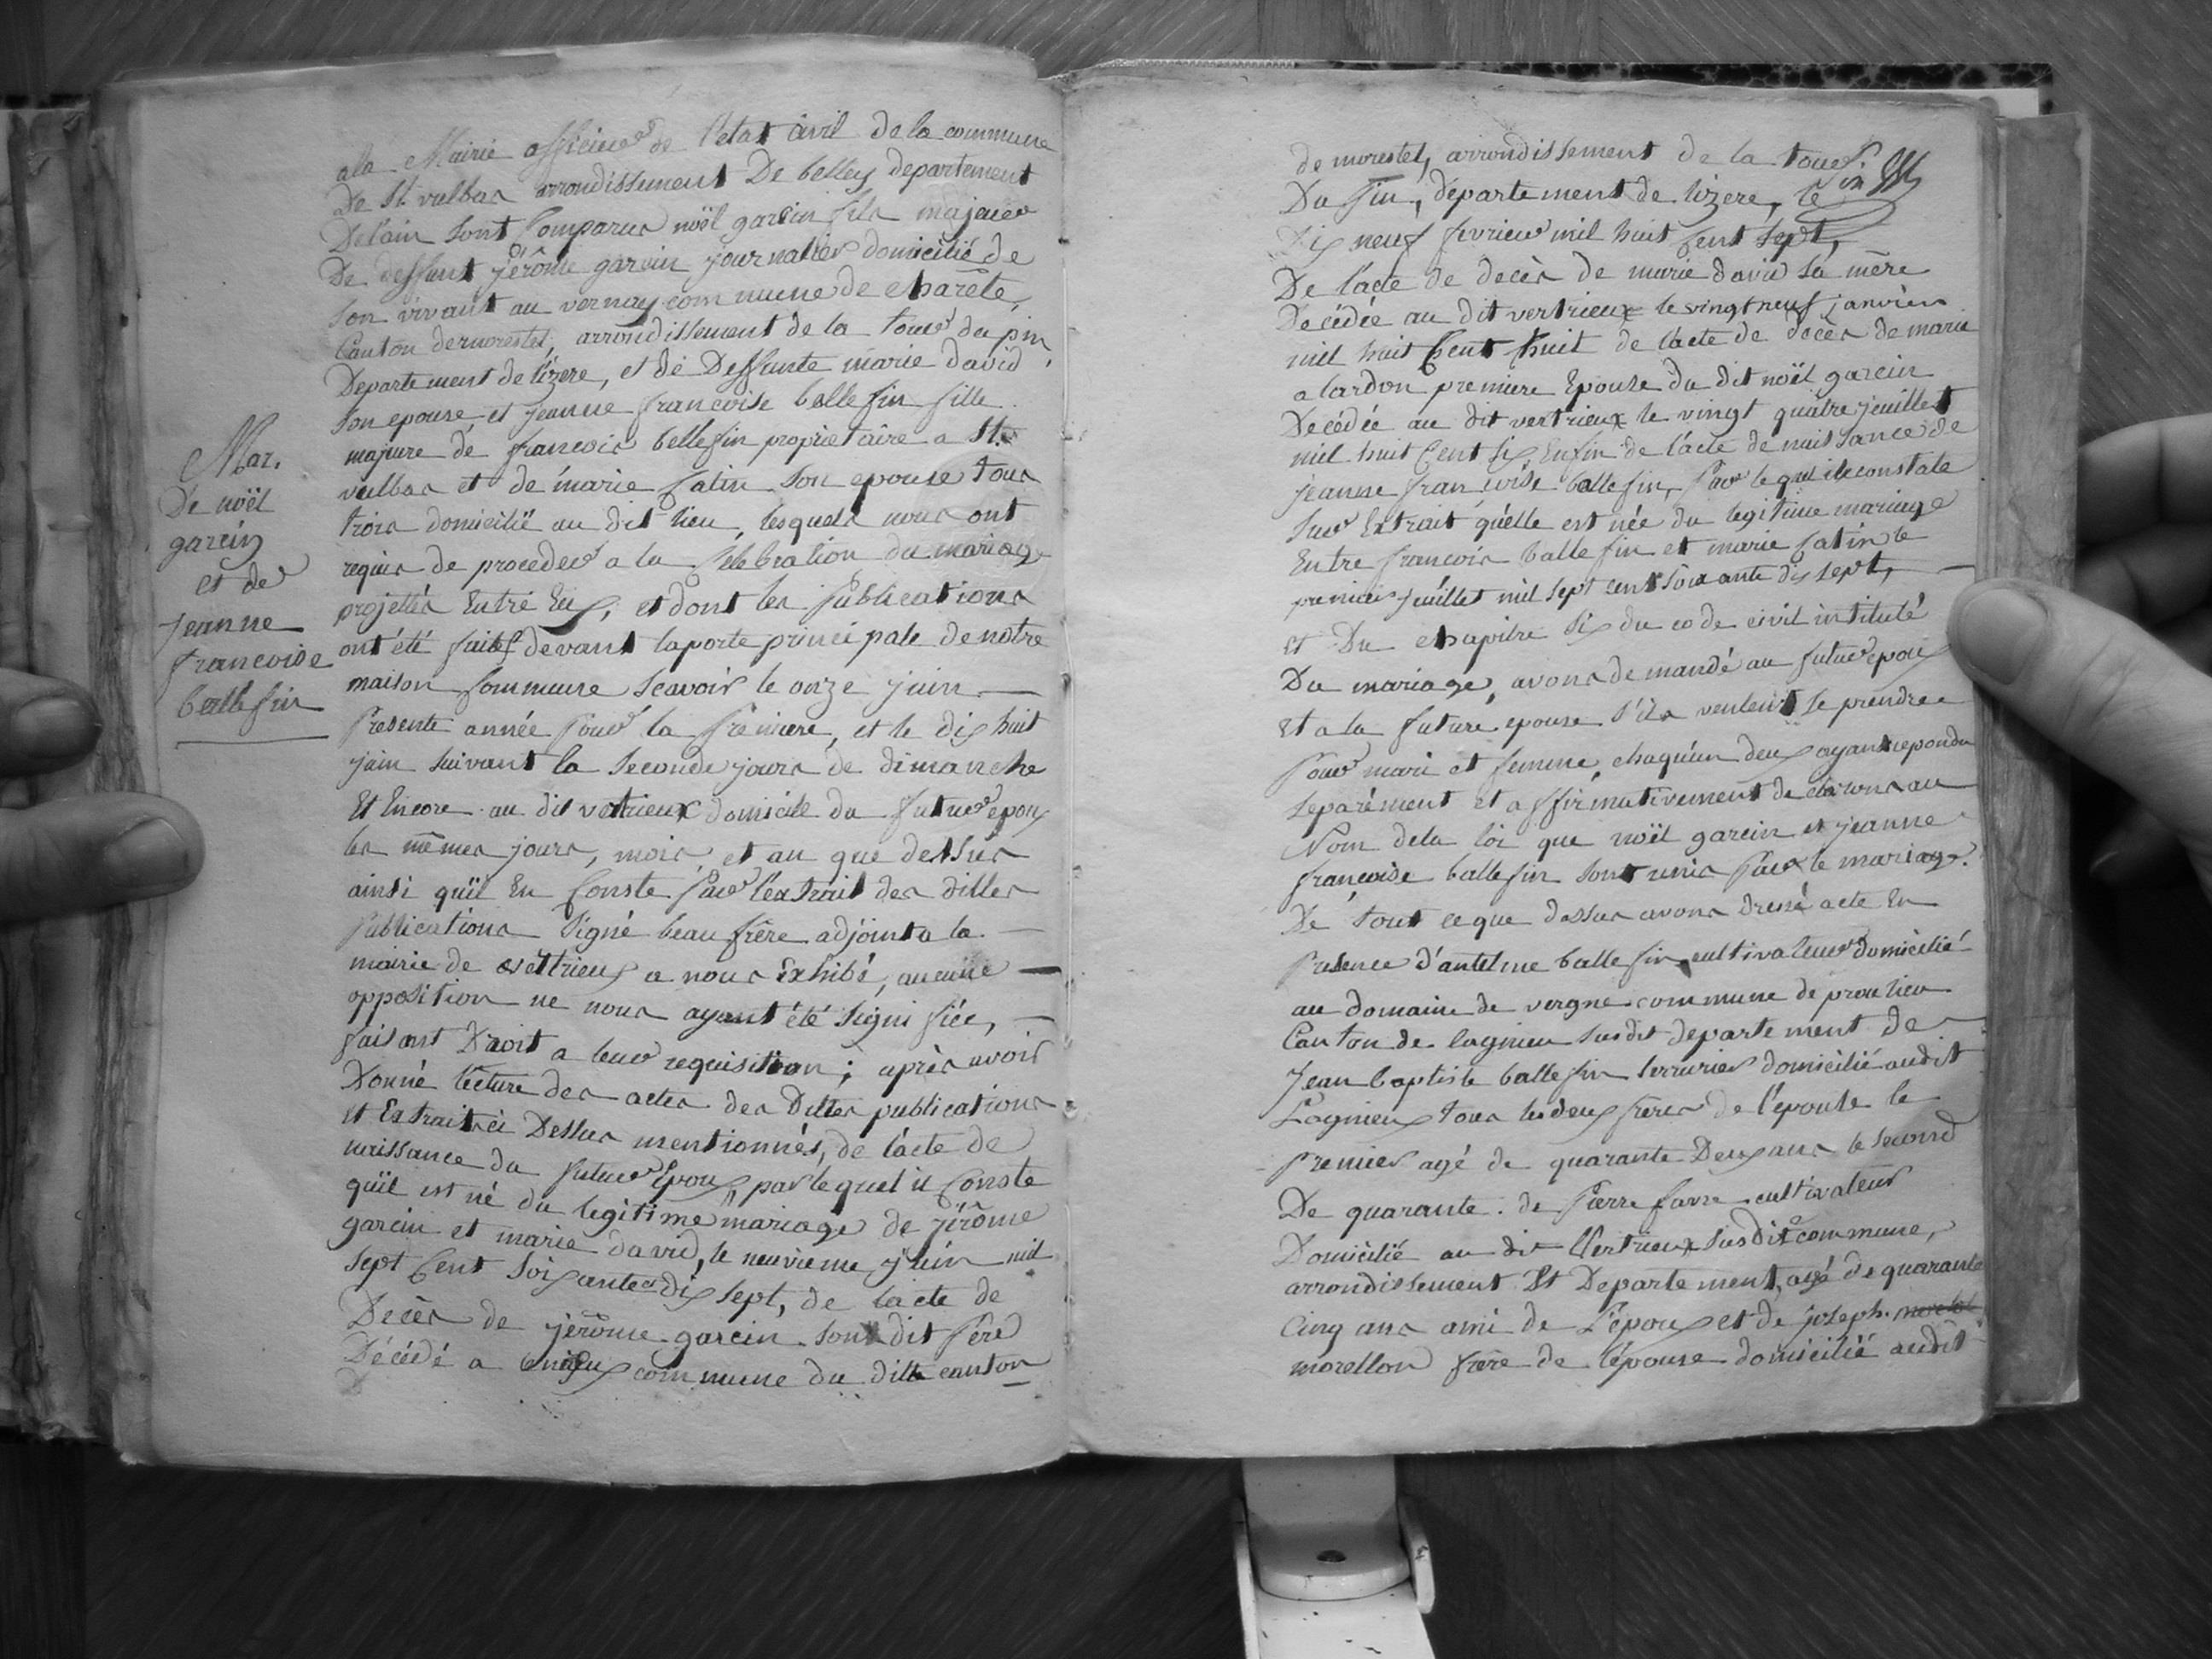 Mar.
De noël
garcin
et de
jeanne
francoise
ballefin
ala Mairie officier de l'etat civil de la commune
De St. vulbas arrondissement De belley departement
Delain sont Comparus noël garcin fils majeur
De deffunt jérôme garcin journalier domicilié de
son vivant au vernay commune de charête,
Canton demorestel, arrondissement de la tour du pin
Departement de lizere, et de Deffunte marie david,
son epouse et jeanne francoise ballefin fille
majure de francois bellefin proprietaire a St.
vulbas et de marie Catin son epouse tous
trois domicilié au dit lieu, lesquels nous ont
requis de proceder a la Celebration du mariage
projettés Entre Eux, et dont les publications
ont été faites devant laporte principale de notre
maison Commune Scavoir le onze juin
presente année pour la premiere, et le dix huit
juin suivant la seconde jours de dimanche
Et Encore au dit vertrieux domicile du futur epoux
les mêmes jours, mois et an que dessus
ainsi qu'il En Conste par l'extrait des dittes
publications Signé beaufrère adjoint a la
mairie de vertrieux a nous Exhibé, aucune
opposition ne nous ayant été signifiée,
faisant Droit a leur requisition; après avoir
Donné lecture des actes des Dittes publications
et Extrait ci Dessus mentionnés, de l'acte de
naissance du futur Epoux, par lequel il Conste
qu'il est né du legitime mariage de jérôme
garcin et marie david, le neuvieme juin mil
sept Cent soixante dix sept, de l'acte de
Decès de jérôme garcin son dit père
Décédé a commune du ditte canton
de morestel, arrondissement de la tour
Du pin, departement de lizere, le
Dix neuf fevrier mil huit Cent sept,
De l'acte de decès de marie david sa mère
Decédée au dit vertrieux le vingt neuf janvier
mil huit Cent huit de l'acte de decès de marie
alardon premiere Epouse du dit noël garcin
Decédée au dit vertrieux le vingt quatre juillet
mil huit Cent six, Enfin de l'acte de naissance de
jeanne francoise ballefin, par lequel il constate
sur Extrait qu'elle est née du legitime mariage
Entre francois ballefin et marie Catin le
premier juillet mil sept cent soixante dix sept,
et Du chapitre six du code civil intitulé
Du mariage, avons demandé au futur epoux
et a la future epouse s'ils veulent se prendre
pour mari et femme, chaqu'un deux ayant repondu
separément et affirmativement declarons au
Nom dela loi que noël garcin et jeanne
françoise ballefin sont unis par le mariage.
De tout ce que dessus avons dressé acte En
presence d'antelme ballefin cultivateur domicilié
au domaine de vergne commune de proulieu
Canton de lagnieu susdit departement de
Jean baptiste ballefin serrurier domicilié audit
Lagnieux tous les deux frères de l'épouse le
premier agé de quarante Deux ans le second
De quarante. de Pierre favre cultivateur
Domicilié au dit Vertrieux susdit commune,
arrondissement Et Departement, agé de quarante
Cinq ans ami de l'époux et de joseph
morellon frère de l'épouse domicilié audit